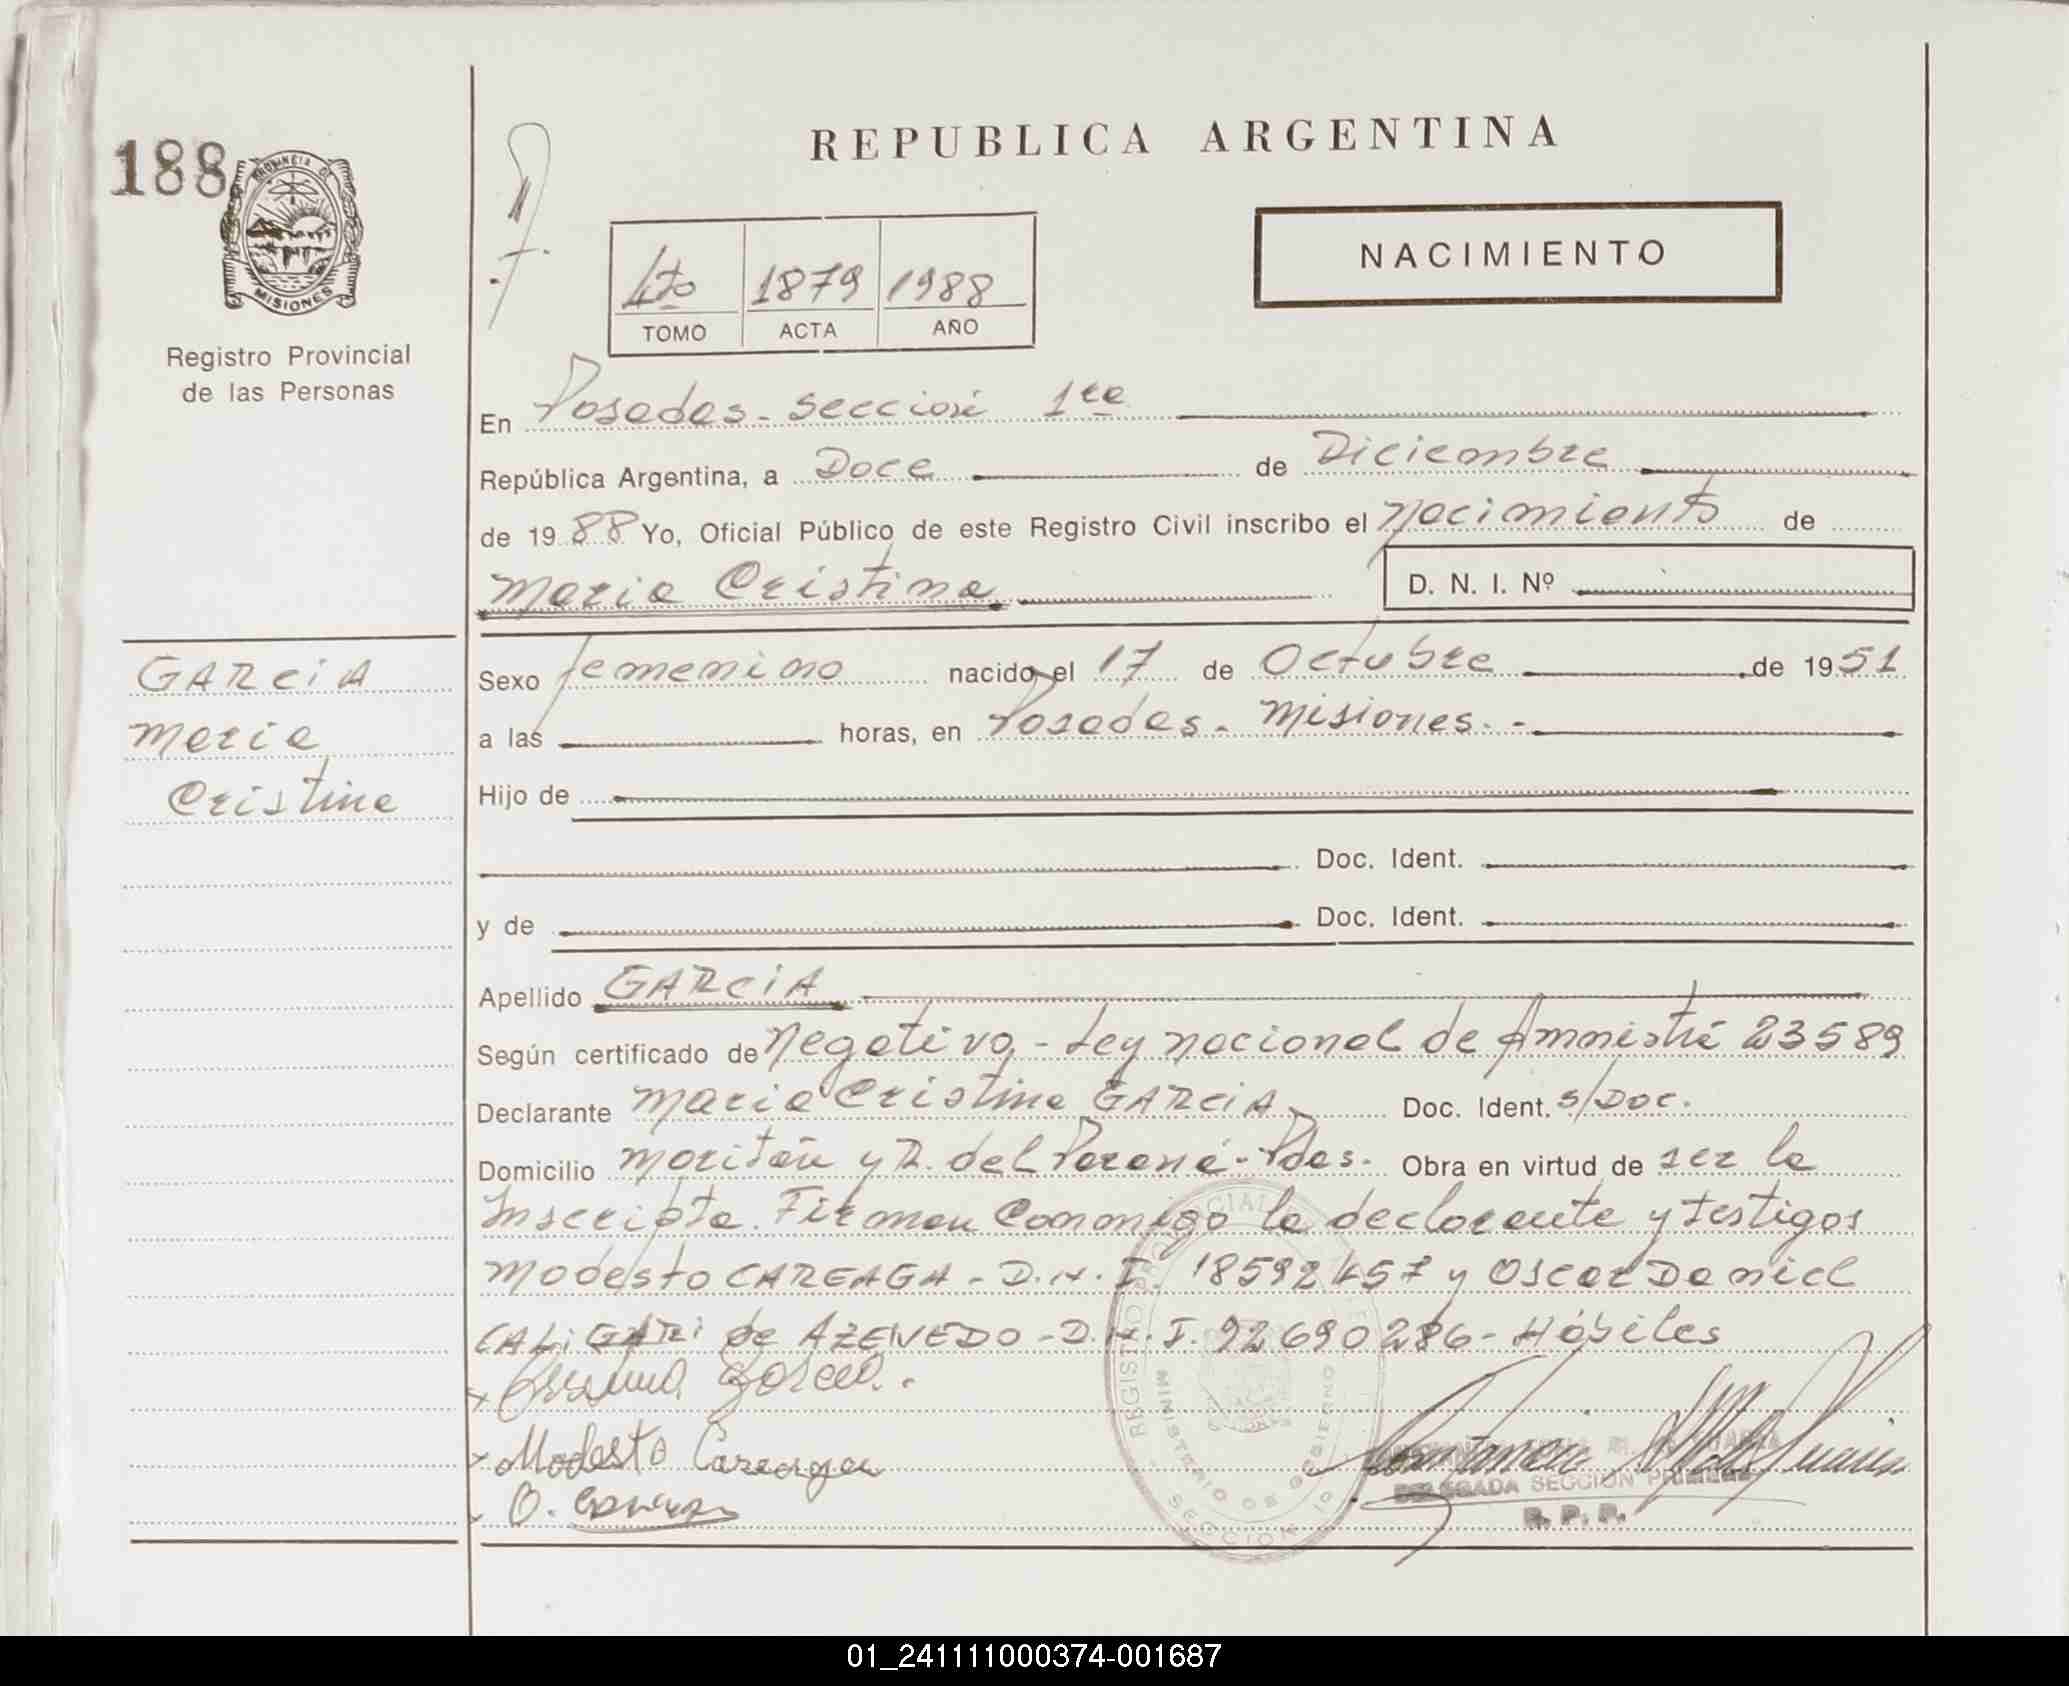 REPUBLICA ARGENTINA
188
PROVINCIA DE
MISIONES
Registro Provincial
de las Personas
NACIMIENTO
4to 1879 1988
TOMO ACTA AÑO
En Posadas - Sección 1ra
República Argentina, a Doce de Diciembre
de 1988 Yo, Oficial Público de este Registro Civil inscribo el nacimiento de
Maria Cristina D. N. I. Nº
GARCIA
Maria
Cristina
Sexo femenino nacido el 17 de Octubre de 1951
a las horas, en Posadas - Misiones. -
Hijo de
Doc. Ident.
y de Doc. Ident.
Apellido GARCIA
Según certificado de Negativo - Ley nacional de Amnistía 23589
Declarante Maria Cristina GARCIA Doc. Ident. s/Doc.
Domicilio y R. del Paraná - Pdas. Obra en virtud de ser la
Inscripta. Firman Conmigo la declarante y testigos
Modesto CAREAGA - D.N.I. 18592457 y Oscar Daniel
CALIGARI de AZEVEDO - D.N.I. 92690286 - Hábiles
Modesto Careaga
O.
REGISTRO PROVINCIAL DE
MINISTERIO DE GOBIERNO
SECCION 1º
DELEGADA SECCION PRIMERA
R. P. P.
01_241111000374-001687